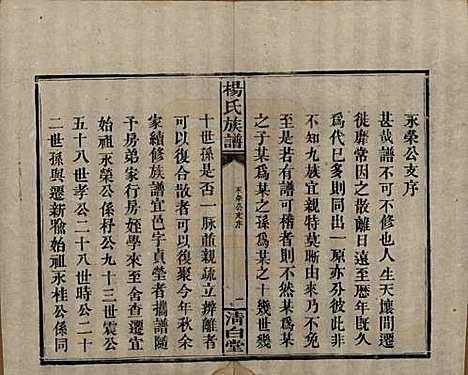 永榮公支序
甚哉譜不可不修也人生天壤間遷
徙靡常因之散離者遠至歷年旣久
爲代已多則同出一原亦分彼此非
不知九族宜親特莫晰由來乃不免
至是若有譜可稽者則某某始爲某
之子某爲某之孫爲某之十幾世某
楊氏族譜
永榮公支序
二
清白堂
十世孫是否一脉葅親疏立辨離者
可以復合散者可以復聚今年秋余
家續修族譜宜邑字貞塋者攜譜隨
予房弟家行房姪學來至舍查遷宜
始祖永榮公係杍公九十三世震公
五十八世孝公二十八世時公二十
二世孫與遷新喩始祖永桂公係同